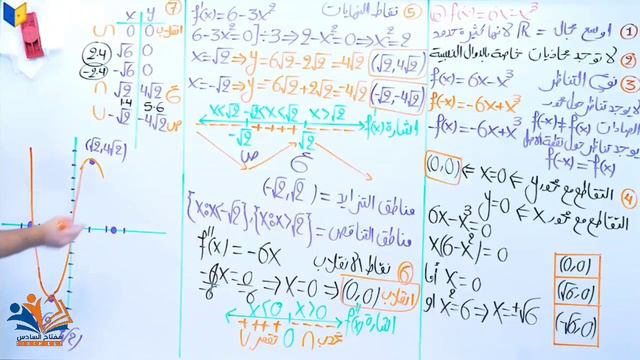 b) f(x) = 6x - x³
① اوسع مجال = R لانها كثيرة حدود
② لا توجد محاذيات خاصة بالدوال النسبية
③ نوع التناظر f(x) = 6x - x³
f(-x) = -6x + x³
-f(x) = -6x + x³
f(-x) ≠ f(x)
④ التقاطع مع محور y ⇐ x=0 ⇐ (0,0)
التقاطع مع محور x ⇐ y=0
6x - x³ = 0
x(6 - x²) = 0
اما x = 0
او x² = 6 ⇒ x = ±√6
(0,0)
(√6,0)
(-√6,0)
⑤ نقاط النهايات f'(x) = 6 - 3x²
6 - 3x² = 0] ÷ 3 ⇒ 2 - x² = 0 ⇒ x² = 2
x = √2 ⇒ y = 6√2 - 2√2 = 4√2 (√2, 4√2)
x = -√2 ⇒ y = -6√2 + 2√2 = -4√2 (-√2, -4√2)
x < -√2 -√2 < x < √2 x > √2
- - - - + + + + - - - - اشارة f'(x)
-√2 √2
مناطق التزايد = (-√2, √2)
مناطق التناقص = {x: x > √2}, {x: x < -√2}
⑥ نقاط الانقلاب f''(x) = -6x
-6x = 0 ⇒ x = 0 ⇒ (0,0) انقلاب
x < 0 x > 0
+ + + + - - - - اشارة f''(x)
∪ تقعر 0 ∩ تحدب
⑦
x y
0 0 انقلاب
2.4 √6 0
-2.4 -√6 0
√2 4√2
1.4 5.6
-√2 -4√2
(√2, 4√2)
مفتاح السادس